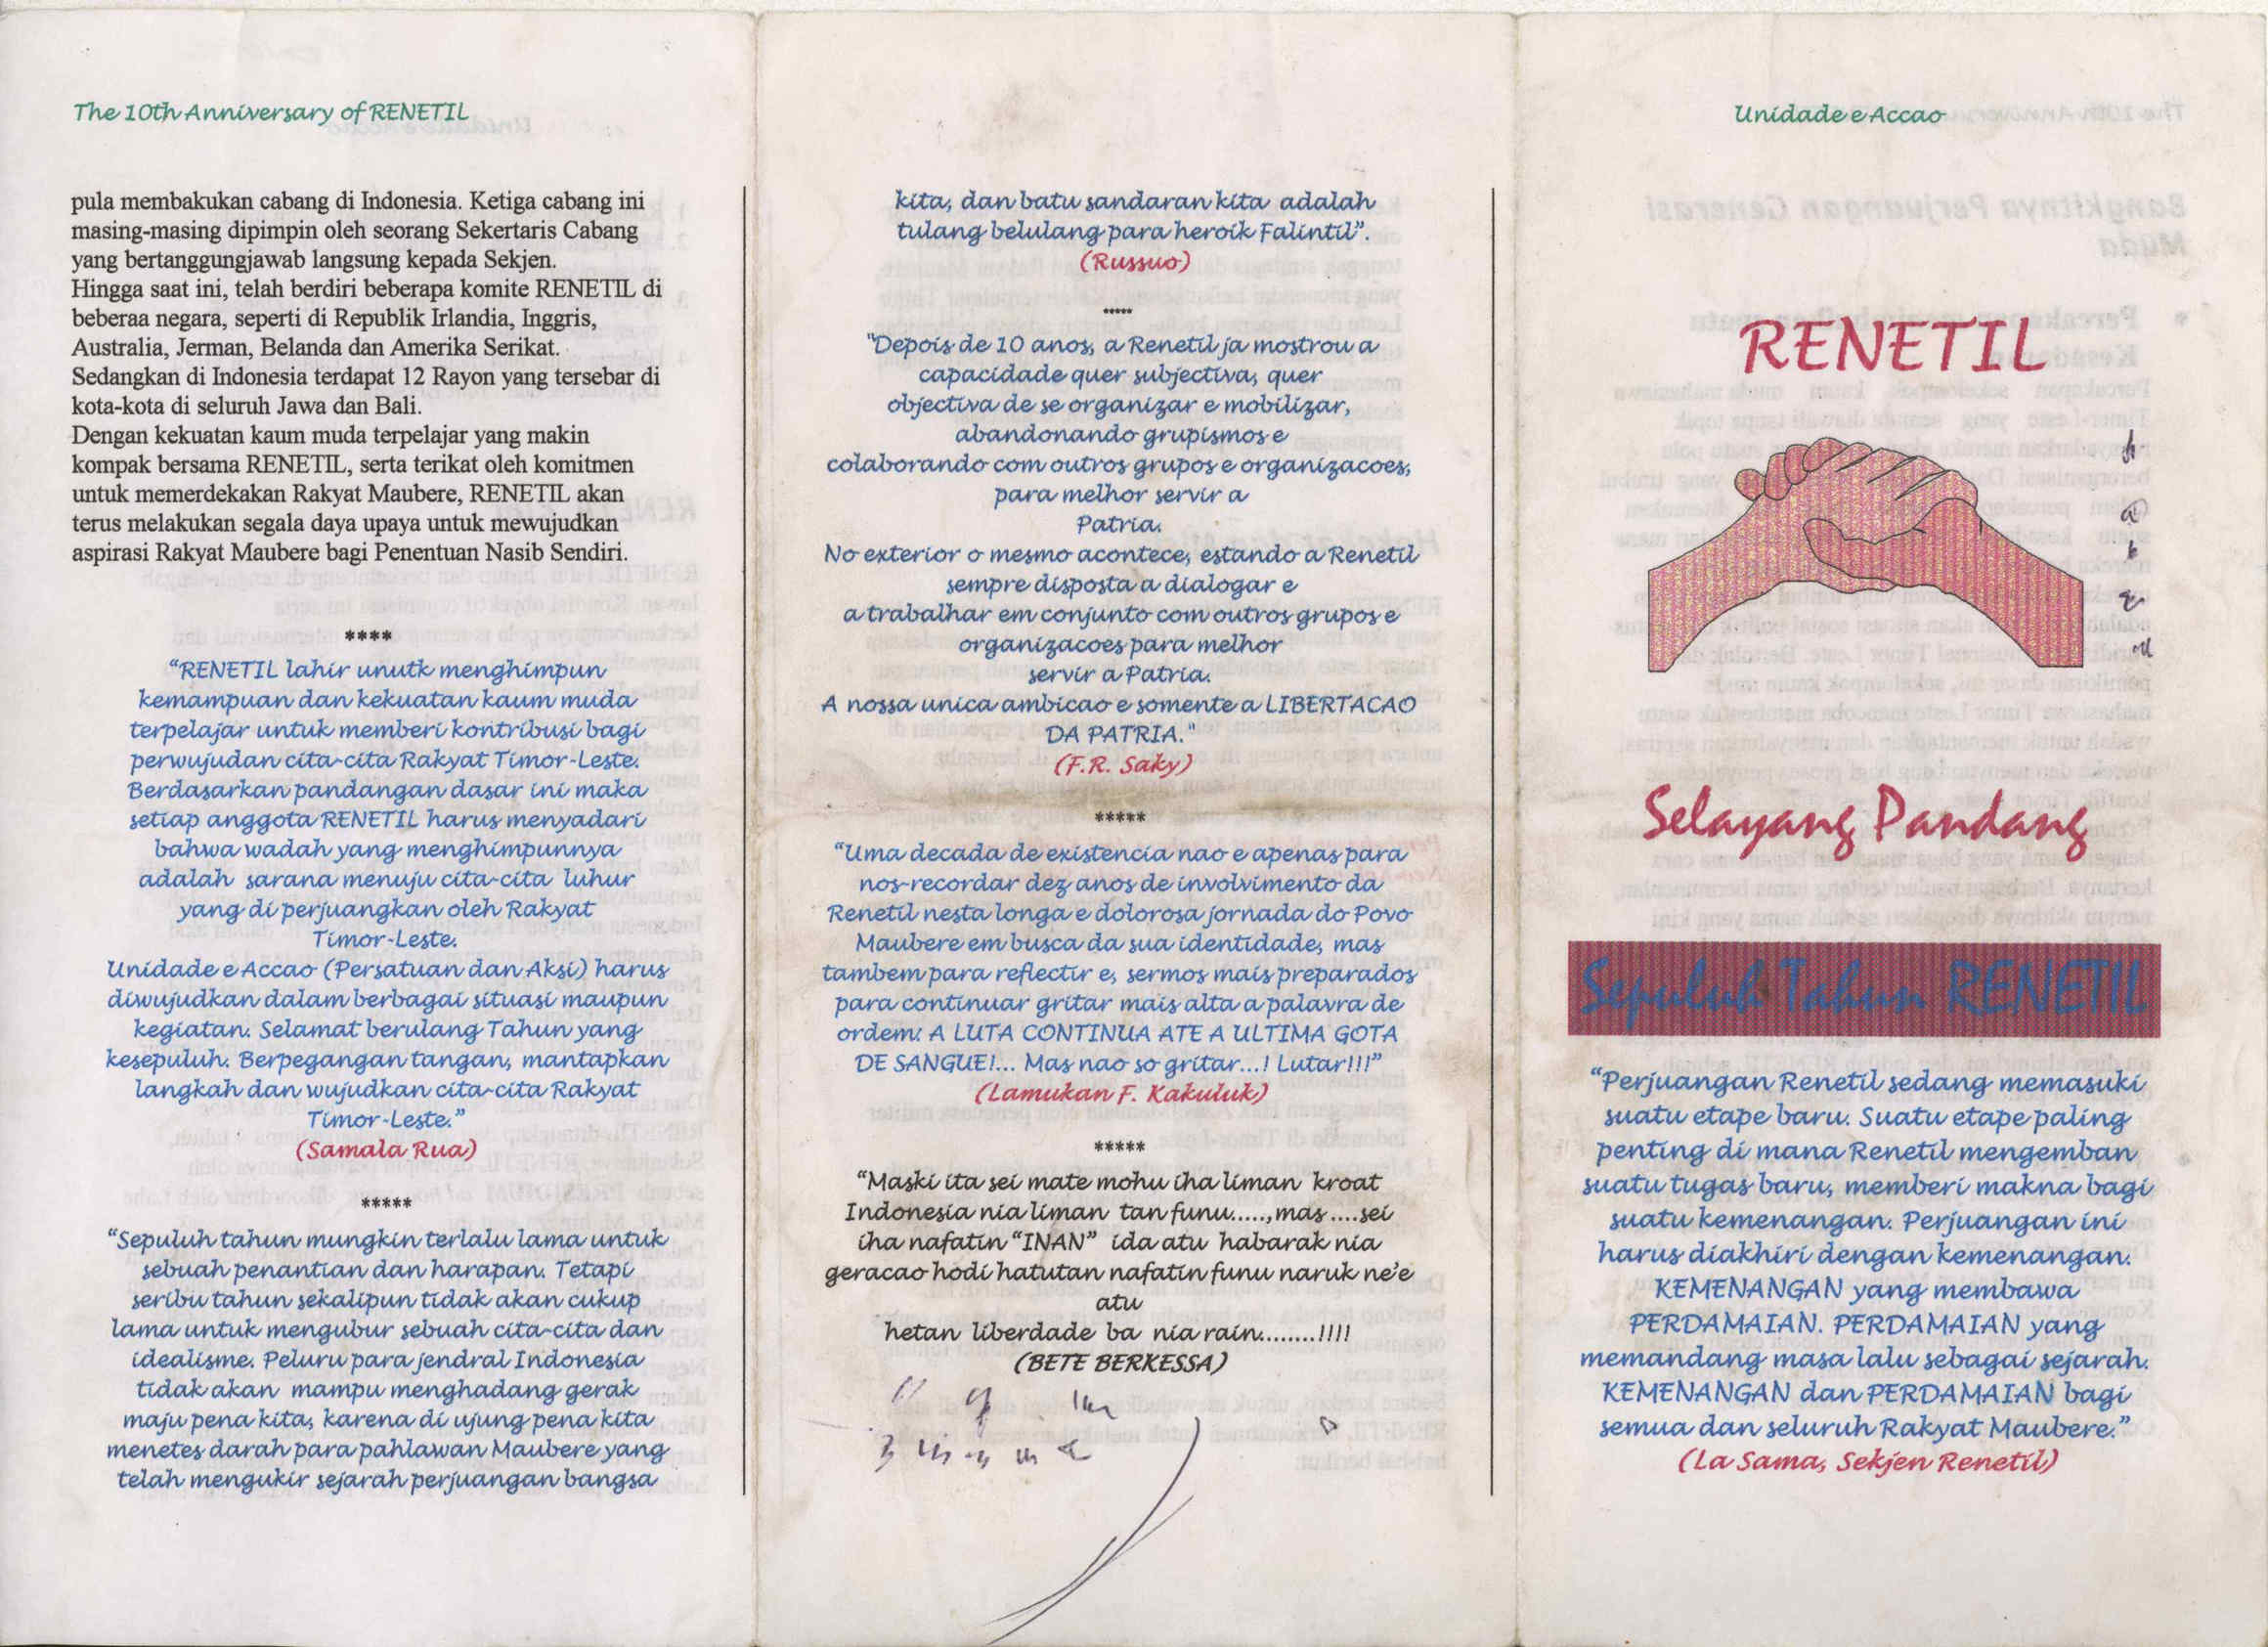 The 10th Anniversary of RENETIL
pula membakukan cabang di Indonesia. Ketiga cabang ini
masing-masing dipimpin oleh seorang Sekertaris Cabang
yang bertanggungjawab langsung kepada Sekjen.
Hingga saat ini, telah berdiri beberapa komite RENETIL di
beberaa negara, seperti di Republik Irlandia, Inggris,
Australia, Jerman, Belanda dan Amerika Serikat.
Sedangkan di Indonesia terdapat 12 Rayon yang tersebar di
kota-kota di seluruh Jawa dan Bali.
Dengan kekuatan kaum muda terpelajar yang makin
kompak bersama RENETIL, serta terikat oleh komitmen
untuk memerdekakan Rakyat Maubere, RENETIL akan
terus melakukan segala daya upaya untuk mewujudkan
aspirasi Rakyat Maubere bagi Penentuan Nasib Sendiri.
****
“RENETIL lahir unutk menghimpun
kemampuan dan kekuatan kaum muda
terpelajar untuk memberi kontribusi bagi
perwujudan cita-cita Rakyat Timor-Leste.
Berdasarkan pandangan dasar ini maka
setiap anggota RENETIL harus menyadari
bahwa wadah yang menghimpunnya
adalah sarana menuju cita-cita luhur
yang di perjuangkan oleh Rakyat
Timor-Leste.
Unidade e Accao (Persatuan dan Aksi) harus
diwujudkan dalam berbagai situasi maupun
kegiatan. Selamat berulang Tahun yang
kesepuluh. Berpegangan tangan, mantapkan
langkah dan wujudkan cita-cita Rakyat
Timor-Leste.”
(Samala Rua)
*****
“Sepuluh tahun mungkin terlalu lama untuk
sebuah penantian dan harapan. Tetapi
seribu tahun sekalipun tidak akan cukup
lama untuk mengubur sebuah cita-cita dan
idealisme. Peluru para jendral Indonesia
tidak akan mampu menghadang gerak
maju pena kita, karena di ujung pena kita
menetes darah para pahlawan Maubere yang
telah mengukir sejarah perjuangan bangsa
kita, dan batu sandaran kita adalah
tulang belulang para heroik Falintil”.
(Russuo)
*****
"Depois de 10 anos, a Renetil ja mostrou a
capacidade quer subjectiva, quer
objectiva de se organizar e mobilizar,
abandonando grupismos e
colaborando com outros grupos e organizacoes,
para melhor servir a
Patria.
No exterior o mesmo acontece, estando a Renetil
sempre disposta a dialogar e
a trabalhar em conjunto com outros grupos e
organizacoes para melhor
servir a Patria.
A nossa unica ambicao e somente a LIBERTACAO
DA PATRIA."
(F.R. Saky)
*****
“Uma decada de existencia nao e apenas para
nos-recordar dez anos de involvimento da
Renetil nesta longa e dolorosa jornada do Povo
Maubere em busca da sua identidade, mas
tambem para reflectir e, sermos mais preparados
para continuar gritar mais alta a palavra de
ordem: A LUTA CONTINUA ATE A ULTIMA GOTA
DE SANGUE!... Mas nao so gritar...! Lutar!!!”
(Lamukan F. Kakuluk)
*****
“Maski ita sei mate mohu iha liman kroat
Indonesia nia liman tan funu.....,mas ....sei
iha nafatin “INAN” ida atu habarak nia
geracao hodi hatutan nafatin funu naruk ne’e
atu
hetan liberdade ba nia rain........!!!!
(BETE BERKESSA)
Unidade e Accao
RENETIL
Selayang Pandang
Sepuluh Tahun RENETIL
“Perjuangan Renetil sedang memasuki
suatu etape baru. Suatu etape paling
penting di mana Renetil mengemban
suatu tugas baru, memberi makna bagi
suatu kemenangan. Perjuangan ini
harus diakhiri dengan kemenangan.
KEMENANGAN yang membawa
PERDAMAIAN. PERDAMAIAN yang
memandang masa lalu sebagai sejarah.
KEMENANGAN dan PERDAMAIAN bagi
semua dan seluruh Rakyat Maubere.”
(La Sama, Sekjen Renetil)